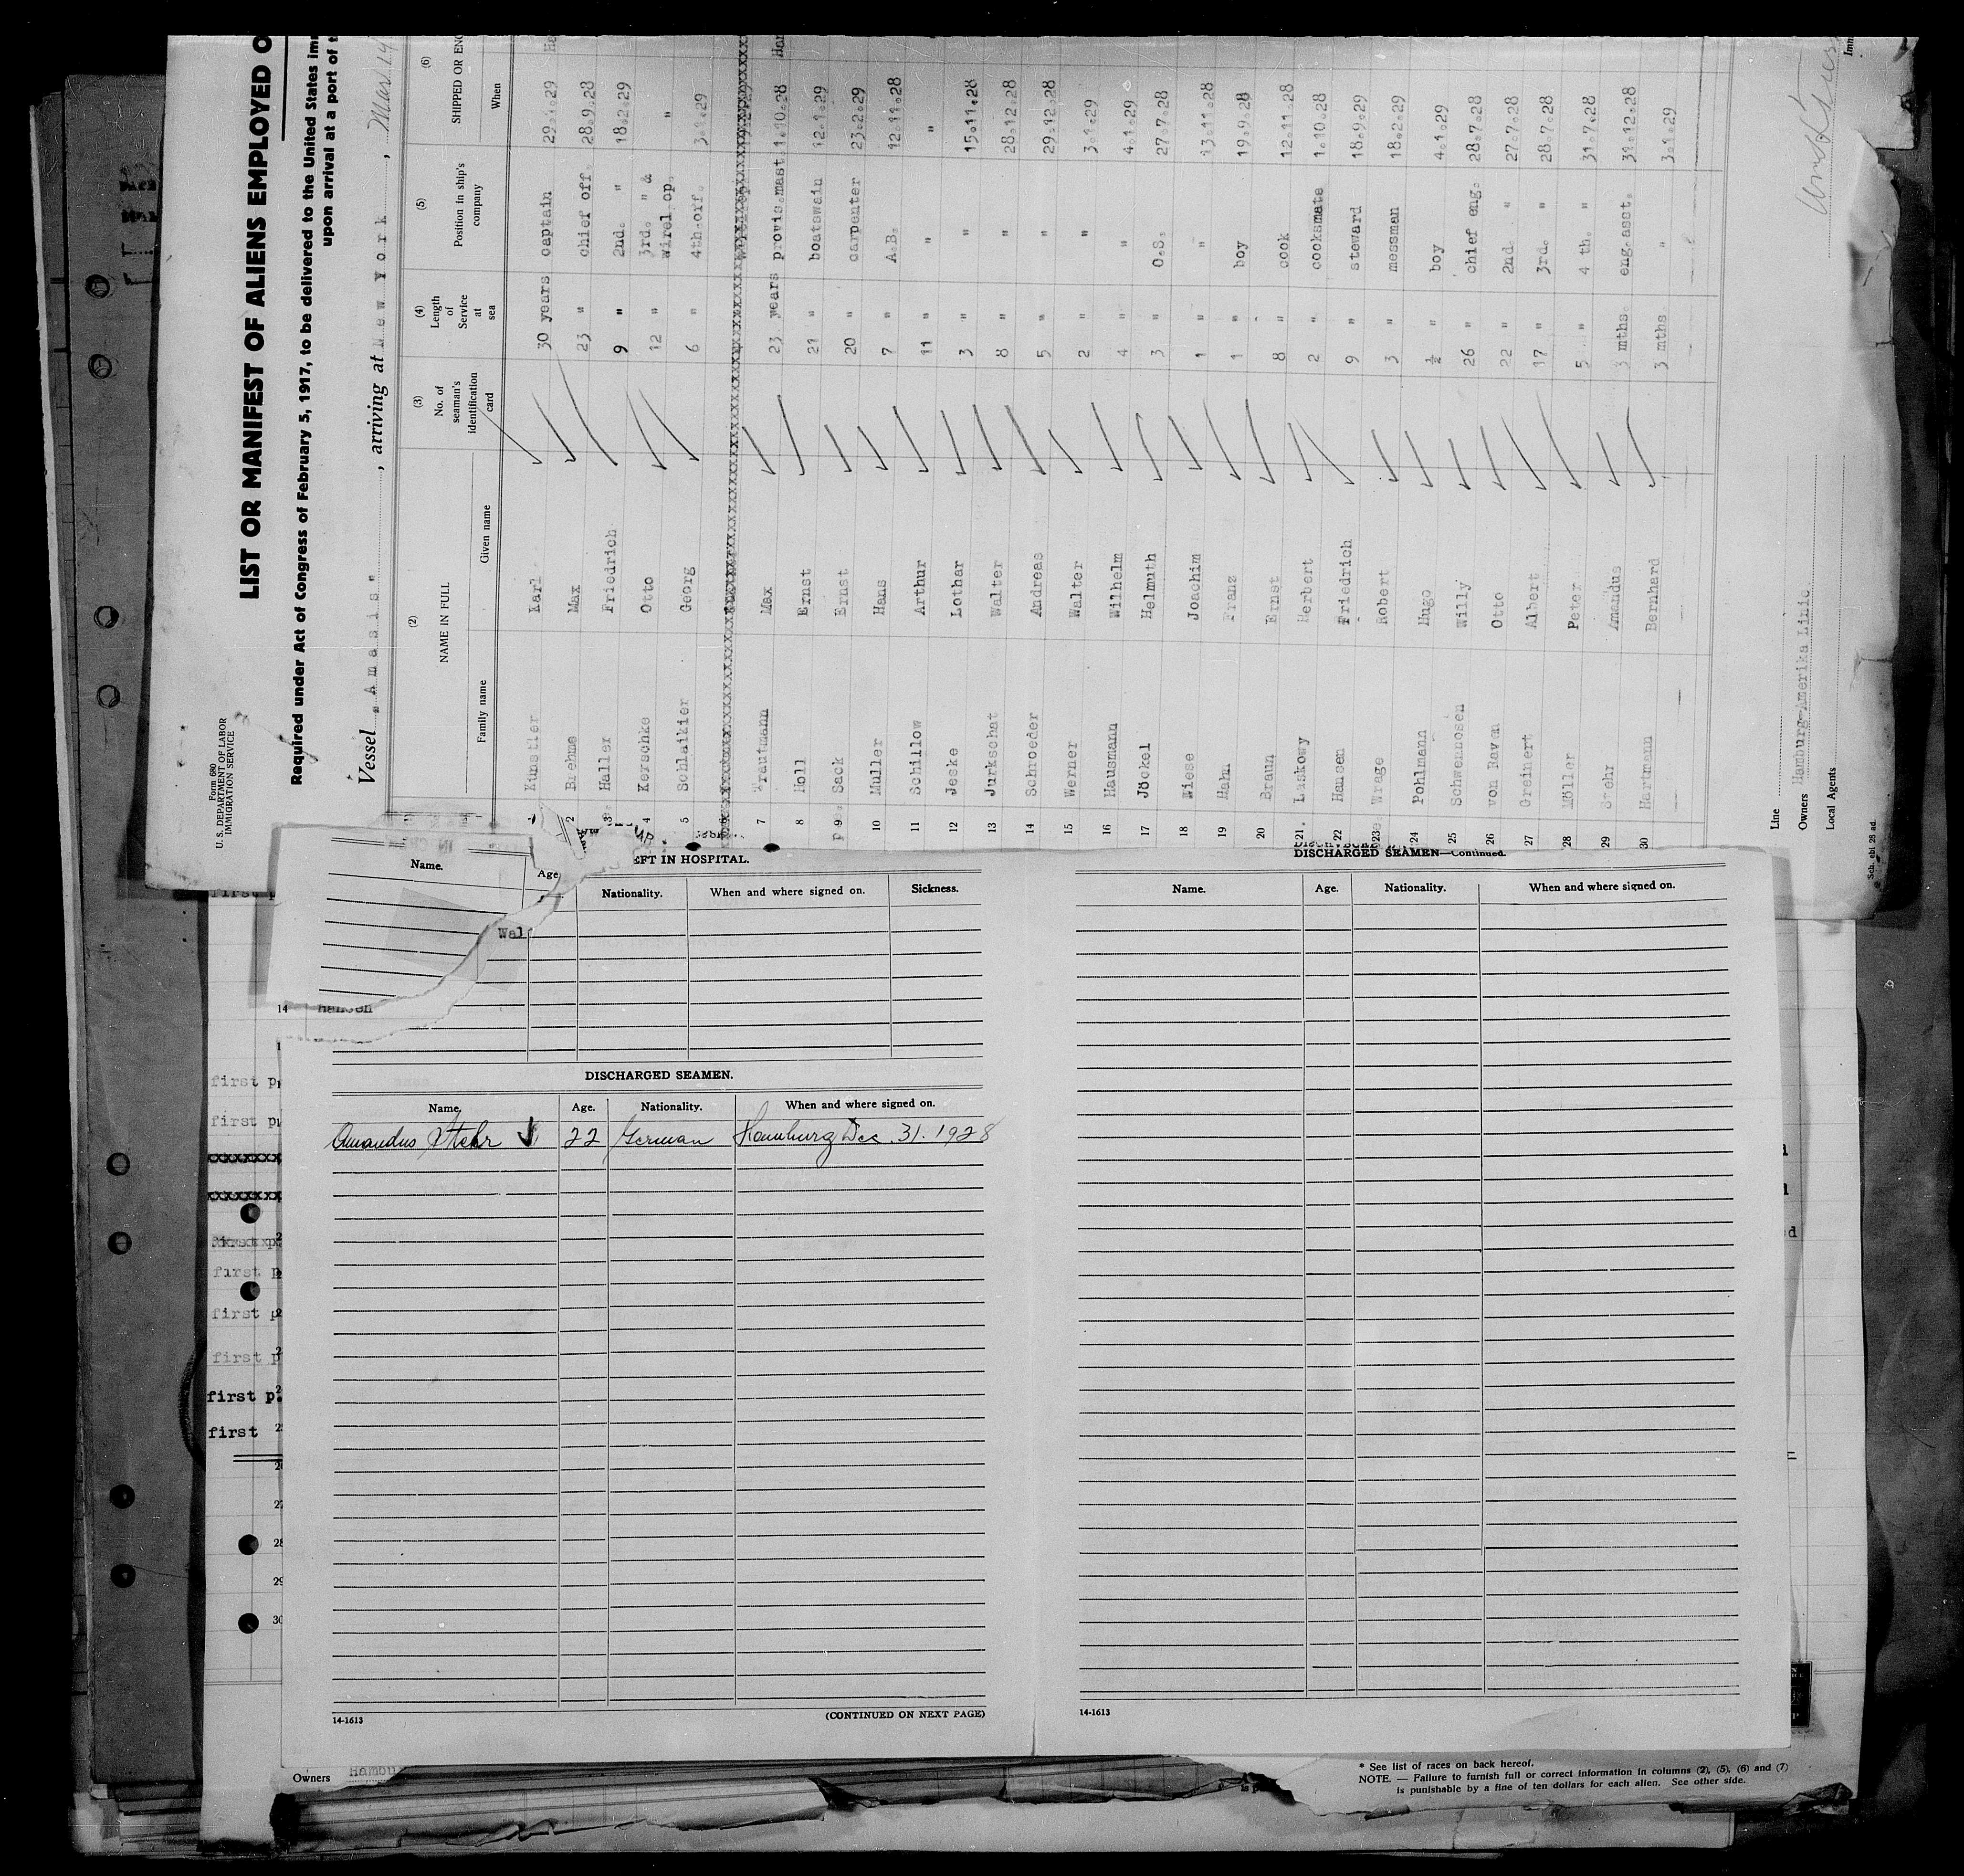 Form 680
U. S. DEPARTMENT OF LABOR
IMMIGRATION SERVICE
LIST OR MANIFEST OF ALIENS EMPLOYED O
Required under Act of Congress of February 5, 1917, to be delivered to the United States im
upon arrival at a port of t
Vessel "Amasis", arriving at New York, Mar. 14
(2) (3) (4) (5) (6)
NAME IN FULL No. of seaman's identification card Length of Service at sea Position in ship's company SHIPPED OR ENG
Family name Given name When
1 Künstler Karl 30 years captain 29.1.29 Ha
2 Brehme Max 23 " chief off. 28.9.28
3 Haller Friedrich 9 " 2nd. " 18.2.29
4 Kerschke Otto 12 " 3rd. " & Wirel.op. "
5 Schlaikier Georg 6 " 4th.off. 3.1.29
7 Trautmann Max 23 years provis.mast 1.10.28 Ham
8 Holl Ernst 21 " boatswain 12.1.29
9 Sack Ernst 20 " carpenter 23.2.29
10 Müller Hans 7 " A.B. 12.11.28
11 Schillow Arthur 11 " " "
12 Jeske Lothar 3 " " 15.11.28
13 Jurkschat Walter 8 " " 28.12.28
14 Schroeder Andreas 5 " " 29.12.28
15 Werner Walter 2 " " 3.1.29
16 Hausmann Wilhelm 4 " " 4.1.29
17 Jöckel Helmuth 3 " O.S. 27.7.28
18 Wiese Joachim 1 " " 13.11.28
19 Hahn Franz 1 " boy 19.9.28
20 Braun Ernst 8 " cook 12.11.28
21 Laskowy Herbert 2 " cooksmate 1.10.28
22 Hansen Friedrich 9 " steward 18.9.29
23 Wrage Robert 3 " messman 18.2.29
24 Pohlmann Hugo ½ " boy 4.1.29
25 Schwennosen Willy 26 " chief eng. 28.7.28
26 von Raven Otto 22 " 2nd. " 27.7.28
27 Greinert Albert 17 " 3rd. " 28.7.28
28 Möller Peter 5 " 4 th. " 31.7.28
29 Stehr Amandus 3 mths. eng.asst. 31.12.28
30 Hartmann Bernhard 3 mths " 3.1.29
Line
Owners Hamburg-Amerika Linie
Local Agents
Sch. ebi 28 ad.
Imm
Name.
Age
EFT IN HOSPITAL.
Nationality. When and where signed on. Sickness.
Wal
14 Hansen
DISCHARGED SEAMEN.
Name. Age. Nationality. When and where signed on.
Amandus Stehr 22 German Hamburg Dec. 31. 1928
14-1613 (CONTINUED ON NEXT PAGE)
DISCHARGED SEAMEN—Continued.
Name. Age. Nationality. When and where signed on.
14-1613
first p
first p
first p
first p
first p
first p
first p.
first
28
29
30
Owners Hambu
* See list of races on back hereof.
NOTE. — Failure to furnish full or correct information in columns (2), (5), (6) and (7)
is punishable by a fine of ten dollars for each alien. See other side.